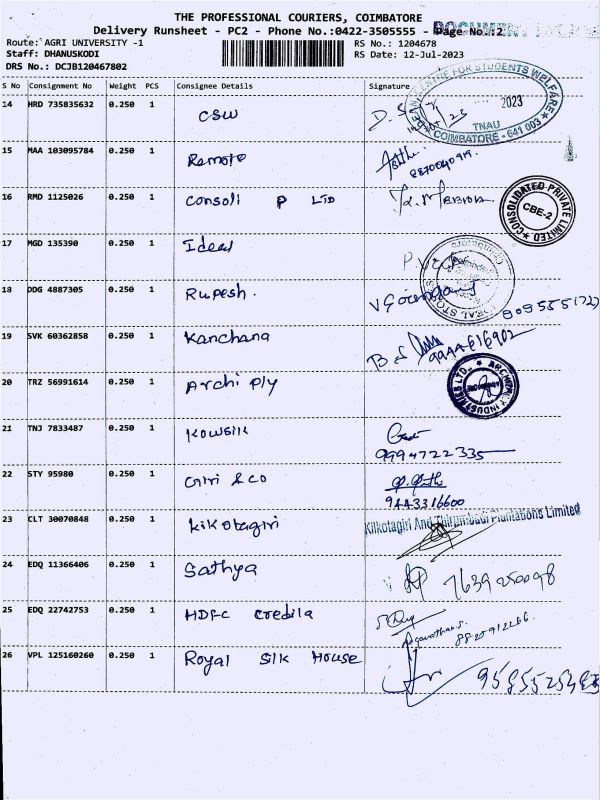 THE PROFESSIONAL COURIERS, COIMBATORE
Delivery Runsheet - PC2 - Phone No.:0422-3505555 - Page No.:2
Route: AGRI UNIVERSITY -1 RS No.: 1204678
Staff: DHANUSKODI RS Date: 12-Jul-2023
DRS No.: DCJB120467802
S No Consignment No Weight PCS Consignee Details Signature
14 HRD 735835632 0.250 1 CSW
DEAN CENTRE FOR STUDENTS WELFARE
2023
TNAU
COIMBATORE - 641 003
15 MAA 103095784 0.250 1 Remote
16 RMD 1125026 0.250 1 Consoli P LTD
CONSOLIDATED PRIVATE LIMITED
CBE-2
17 MGD 135390 0.250 1 Ideal
18 DDG 4887305 0.250 1 Rupesh.
19 SVK 60362858 0.250 1 Kanchana 9944616902
20 TRZ 56991614 0.250 1 Archi ply
21 TNJ 7833487 0.250 1 Kowsik
9994722335
22 STY 95980 0.250 1 Giri & co
9443316600
23 CLT 30070848 0.250 1 kilkotagiri
Kilkotagiri And Thirumbadi Plantations Limited
24 EDQ 11366406 0.250 1 Sathya 7639250098
25 EDQ 22742753 0.250 1 HDFC credila
26 VPL 125160260 0.250 1 Royal Silk House